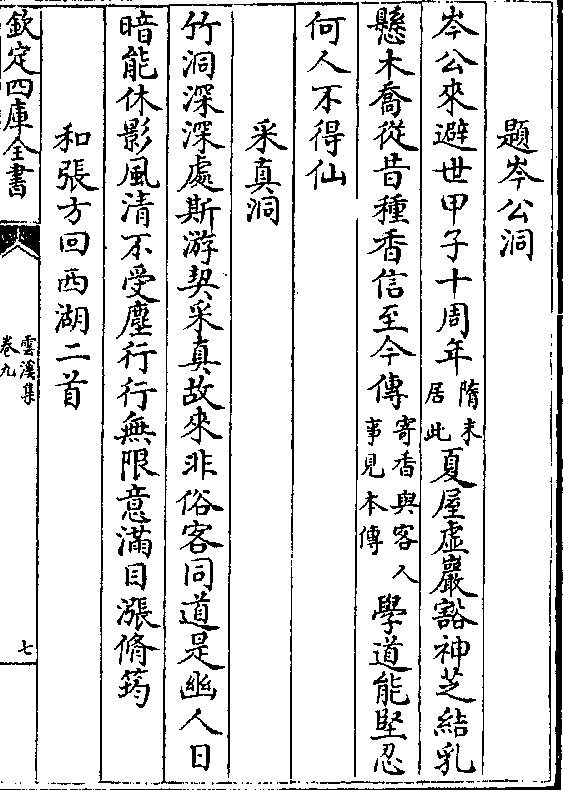 題岑公洞
岑公來避世甲子十周年隋末居此夏屋虛巖豁神芝結乳
懸木喬從昔種香信至今傳寄香與客人事見本傳學道能堅忍
何人不得仙
采真洞
竹洞深深處斯游契采真故來非俗客同道是幽人日
暗能休影風清不受塵行行無限意滿目漲脩筠
和張方回西湖二首
欽定四庫全書
雲溪集
卷九
七